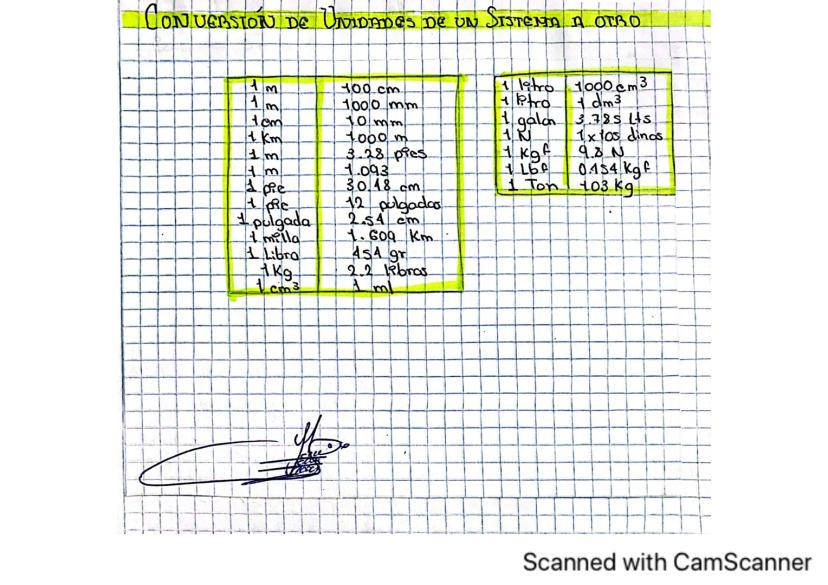 CONVERSIÓN DE UNIDADES DE UN SISTEMA A OTRO
1 m 100 cm
1 m 1000 mm
1 cm 10 mm
1 Km 1000 m
1 m 3.28 pies
1 m 1.093
1 pie 30.48 cm
1 pie 12 pulgadas
1 pulgada 2.54 cm
1 milla 1.609 Km
1 Libra 454 gr
1 Kg 2.2 libras
1 cm3 1 ml
1 litro 1000 cm3
1 litro 1 dm3
1 galon 3.785 Lts
1 N 1x105 dinas
1 Kgf 9.8 N
1 Lbf 0.454 Kgf
1 Ton 103 Kg
Scanned with CamScanner